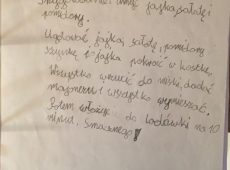 umyć fajkę, sałatę i
pomidory.
Ugotować fajka, sałatę, pomidory
szynkę i fajka pokroić w kostkę,
Wszystko wrzucić do miski, dodać
majonezu i wszystko wymieszać.
Potem włożyć do lodówki na 10
minut. Smacznego!